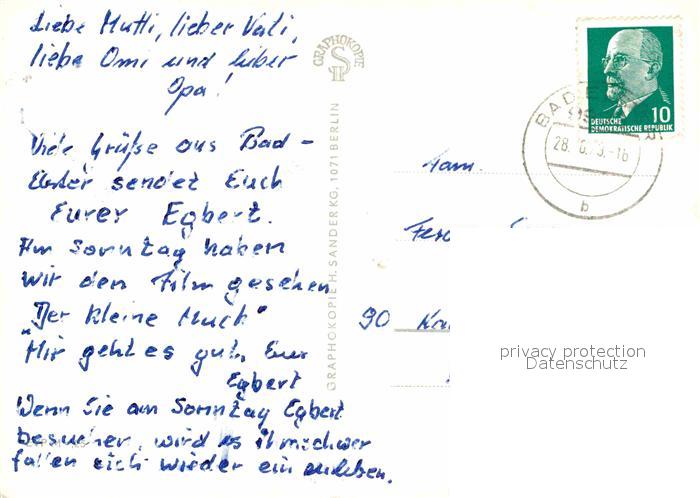 Liebe Mutti, lieber Vati,
liebe Omi und lieber
Opa!
Viele Grüße aus Bad-
Elster sendet Euch
Eurer Egbert.
Am Sonntag haben
wir den Film gesehen
"Der kleine Muck"
Mir geht es gut, Euer
Egbert
Wenn Sie am Sonntag Egbert
besuchen, wird es ihm schwer
fallen sich wieder ein zuleben.
GRAPHOKOPIE
GRAPHOKOPIE H. SANDER KG, 1071 BERLIN
10
DEUTSCHE
DEMOKRATISCHE REPUBLIK
BAD
28.
-16
b
Fam.
90
privacy protection
Datenschutz